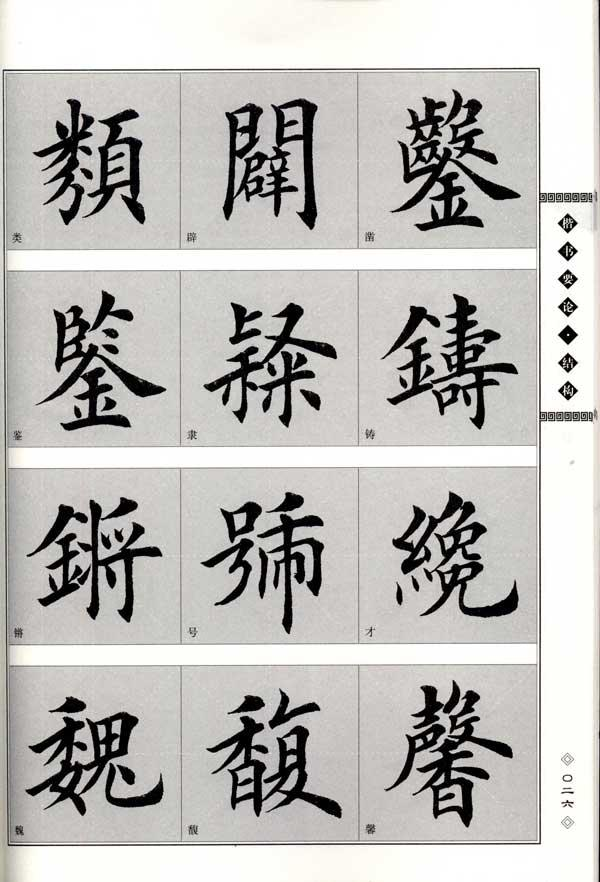 楷书要论·结构
鑿 闢 類
凿 辟 类
鑄 隸 鑒
铸 隶 鉴
纔 號 鏘
才 号 锵
馨 馥 魏
馨 馥 魏
〇二六